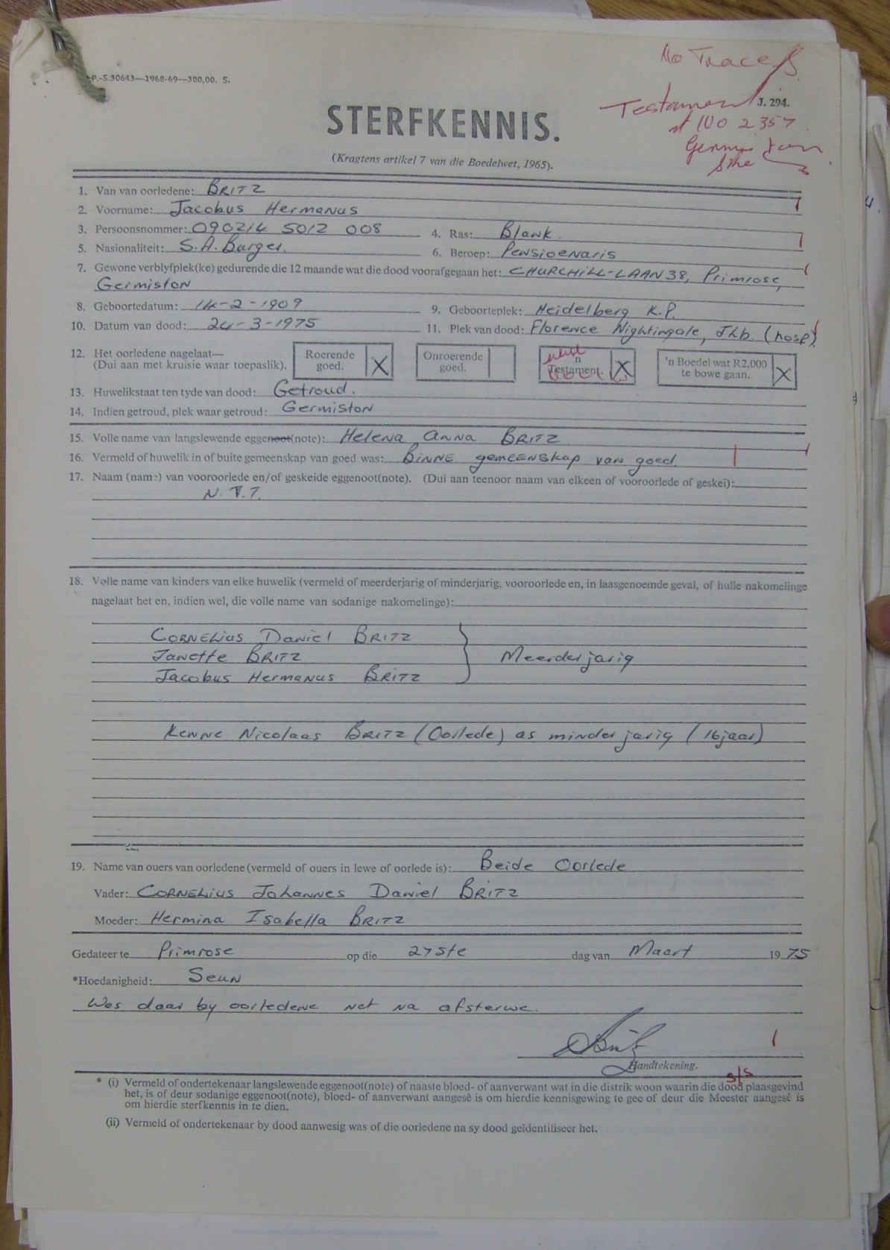 P.-S.30643—1968-69—300,00. S.
No Trace
Testament
J. 294.
STERFKENNIS.
No 2357
(Kragtens artikel 7 van die Boedelwet, 1965).
1. Van van oorledene: BRITZ
2. Voorname: Jacobus Hermanus
3. Persoonsnommer: 090214 5012 008 4. Ras: Blank.
5. Nasionaliteit: S.A. Burger. 6. Beroep: Pensioenaris
7. Gewone verblyfplek(ke) gedurende die 12 maande wat die dood voorafgegaan het: CHURCHILL-LAAN 38, Primrose,
Germiston
8. Geboortedatum: 14-2-1909 9. Geboorteplek: Heidelberg K.P.
10. Datum van dood: 24-3-1975 11. Plek van dood: Florence Nightingale, Jhb. (hosp)
12. Het oorledene nagelaat— Roerende goed. X Onroerende goed. 'n Testament. X 'n Boedel wat R2,000 te bowe gaan. X
(Dui aan met kruisie waar toepaslik).
13. Huwelikstaat ten tyde van dood: Getroud.
14. Indien getroud, plek waar getroud: Germiston
15. Volle name van langslewende eggenoot(note): Helena Anna BRITZ
16. Vermeld of huwelik in of buite gemeenskap van goed was: BINNE gemeenskap van goed.
17. Naam (name) van vooroorlede en/of geskeide eggenoot(note). (Dui aan teenoor naam van elkeen of vooroorlede of geskei):
N.V.T.
18. Volle name van kinders van elke huwelik (vermeld of meerderjarig of minderjarig, vooroorlede en, in laasgenoemde geval, of hulle nakomelinge
nagelaat het en, indien wel, die volle name van sodanige nakomelinge):
CORNELIUS Daniel BRITZ
Janette BRITZ Meerderjarig
Jacobus Hermanus BRITZ
Nicolaas BRITZ (Oorlede) as minderjarig (16 jaar)
19. Name van ouers van oorledene (vermeld of ouers in lewe of oorlede is): Beide Oorlede
Vader: CORNELIUS Johannes Daniel BRITZ
Moeder: Hermina Isabella BRITZ
Gedateer te Primrose op die 27ste dag van Maart 1975
*Hoedanigheid: Seun
Was daar by oorledene net na afsterwe.
Handtekening.
* (i) Vermeld of ondertekenaar langslewende eggenoot(note) of naaste bloed- of aanverwant wat in die distrik woon waarin die dood plaasgevind
het, is of deur sodanige eggenoot(note), bloed- of aanverwant aangesê is om hierdie kennisgewing te gee of deur die Meester aangesê is
om hierdie sterfkennis in te dien.
(ii) Vermeld of ondertekenaar by dood aanwesig was of die oorledene na sy dood geïdentifiseer het.